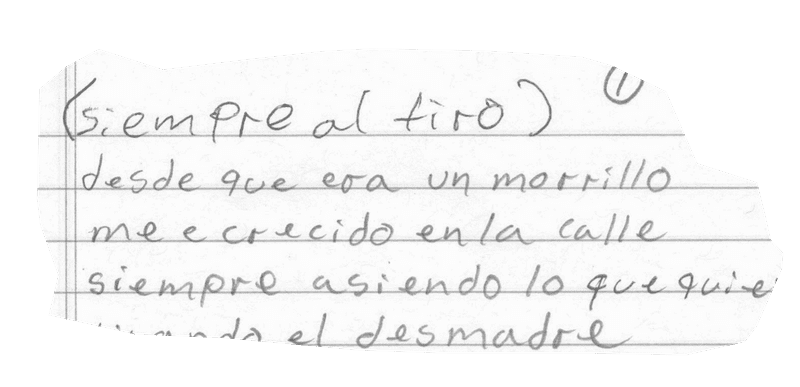 (siempre al tiro) 1
desde que era un morrillo
me e crecido en la calle
siempre asiendo lo que quie
el desmadre